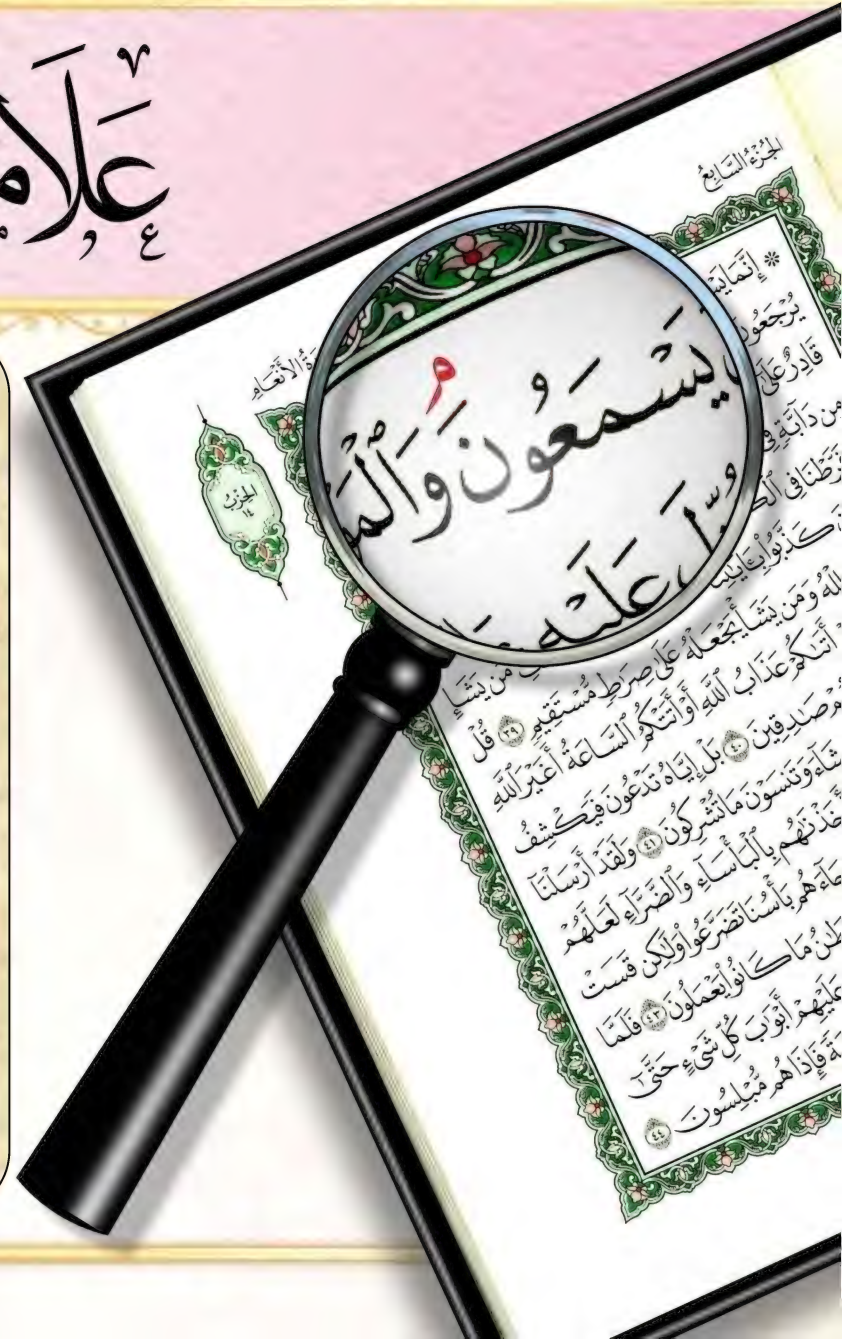 عَلَامـ
الجُزْءُ السَّابِعُ
ةُ الأَنْعَامِ
الحِزْبُ
١٤
يَسْمَعُونَ ۘ وَٱلْمَوْ
عَلَيْهِ
* إِنَّمَا يَسْـ
يُرْجَعُونَ
قَادِرٌ عَلَىٰٓ
مِن دَآبَّةٍ فِي
فَرَّطْنَا فِي ٱلْكـ
كَذَّبُوا۟ بِـَٔايَٰتِنَا
ٱللَّهُ وَمَن يَشَأْ يَجْعَلْهُ عَلَىٰ صِرَٰطٍ مُّسْتَقِيمٍ ٣٩ قُلْ
أَتَىٰكُمْ عَذَابُ ٱللَّهِ أَوْ أَتَتْكُمُ ٱلسَّاعَةُ أَغَيْرَ ٱللَّهِ
صَٰدِقِينَ ٤٠ بَلْ إِيَّاهُ تَدْعُونَ فَيَكْشِفُ
شَآءَ وَتَنسَوْنَ مَا تُشْرِكُونَ ٤١ وَلَقَدْ أَرْسَلْنَآ
خَذْنَٰهُم بِٱلْبَأْسَآءِ وَٱلضَّرَّآءِ لَعَلَّهُمْ
جَآءَهُم بَأْسُنَا تَضَرَّعُوا۟ وَلَٰكِن قَسَتْ
طَٰنُ مَا كَانُوا۟ يَعْمَلُونَ ٤٣ فَلَمَّا
عَلَيْهِمْ أَبْوَٰبَ كُلِّ شَىْءٍ حَتَّىٰٓ
ةً فَإِذَا هُم مُّبْلِسُونَ ٤٤